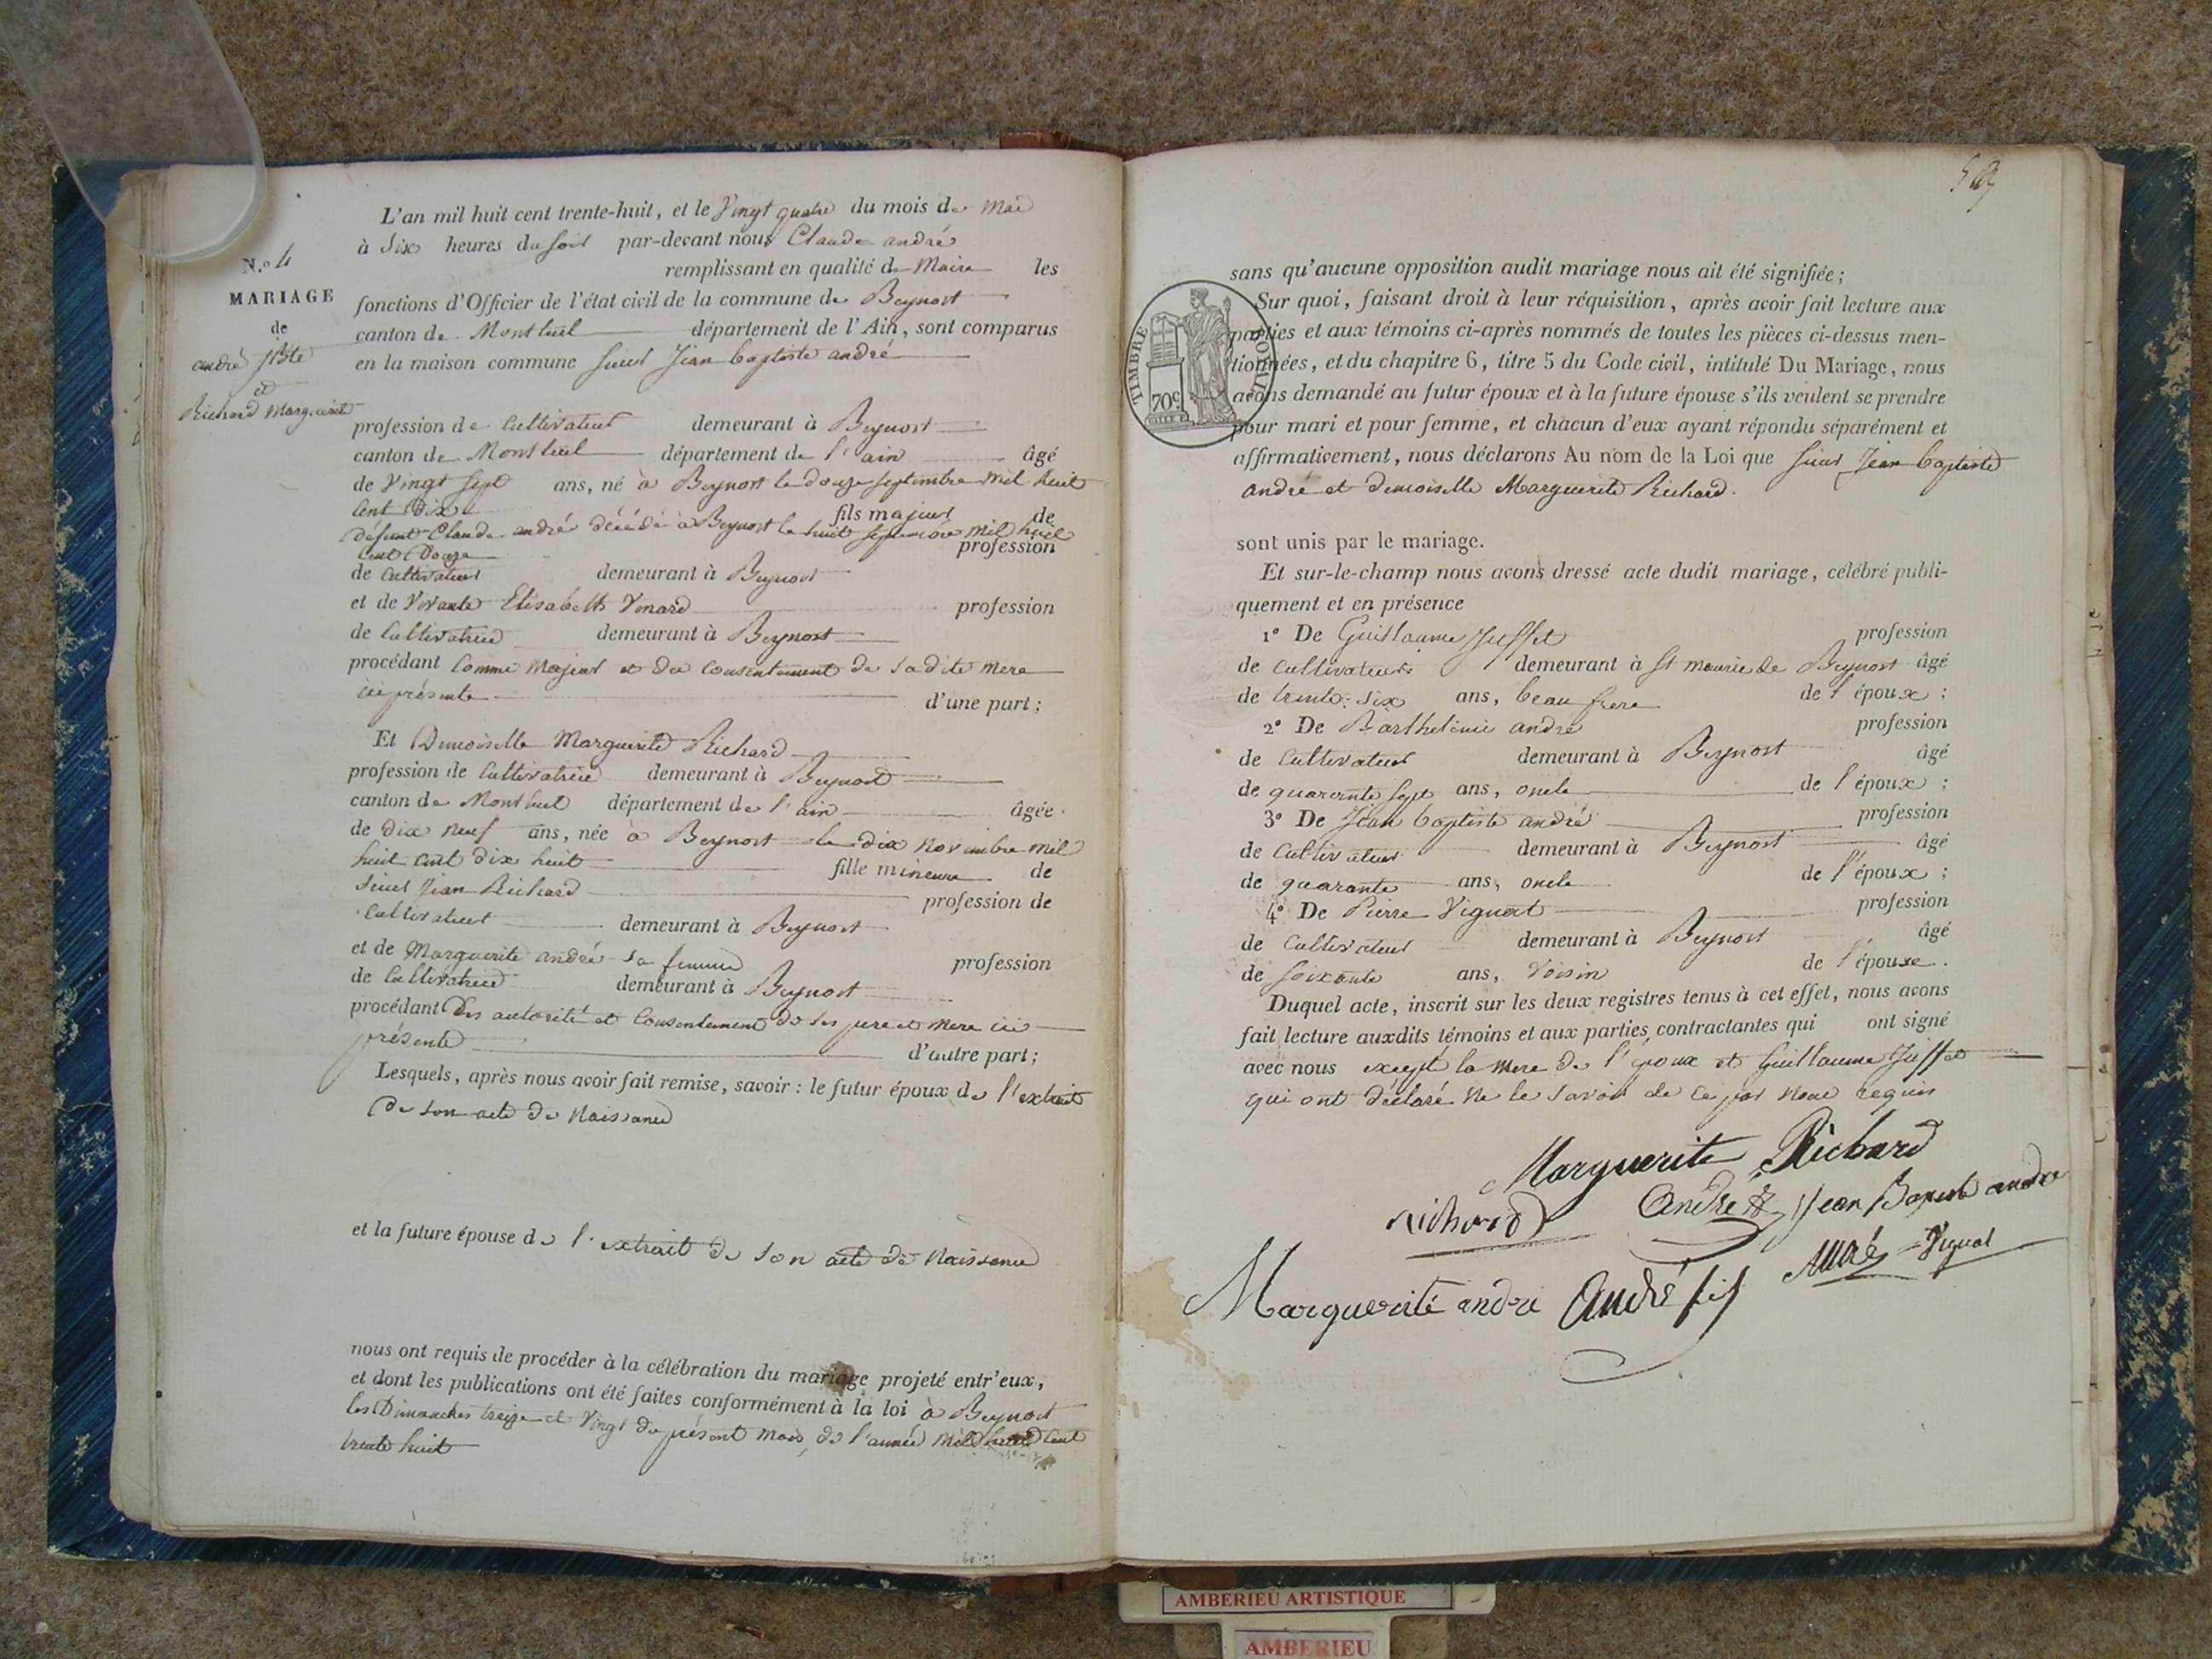 L'an mil huit cent trente-huit, et le Vingt quatre du mois de Mai
à Six heures du soir par-devant nous Claude andré
remplissant en qualité de Maire les
N.º 4
MARIAGE
de
andré JBte
et
Richard Marguerite
fonctions d'Officier de l'état civil de la commune de Beynost
canton de Montluel département de l'Ain, sont comparus
en la maison commune sieur Jean baptiste andré
profession de Cultivateur demeurant à Beynost
canton de Montluel département de l'ain âgé
de Vingt sept ans, né à Beynost le douze septembre mil huit
Cent Dix fils majeur de
défunt Claude andré décédé à Beynost le huit septembre mil huit
Cent Douze profession
de Cultivateur demeurant à Beynost
et de Vivante Elisabeth Venard profession
de Cultivatrice demeurant à Beynost
procédant Comme Majeur et du Consentement de sadite mere
ici présente d'une part;
Et Demoiselle Marguerite Richard
profession de Cultivatrice demeurant à Beynost
canton de Montluel département de l'ain âgée
de dix neuf ans, née à Beynost le dix novembre mil
huit cent dix huit fille mineure de
Sieur Jean Richard profession de
Cultivateur demeurant à Beynost
et de Marguerite andré sa femme profession
de Cultivatrice demeurant à Beynost
procédant Des autorité et Consentement de ses pere et mere ici
présente d'autre part;
Lesquels, après nous avoir fait remise, savoir : le futur époux de l'extrait
De son acte de Naissance
et la future épouse de l'extrait de son acte de Naissance
nous ont requis de procéder à la célébration du mariage projeté entr'eux,
et dont les publications ont été faites conformément à la loi à Beynost
les Dimanches treize et Vingt du présent mois, de l'année mil huit Cent
trente huit
sans qu'aucune opposition audit mariage nous ait été signifiée;
Sur quoi, faisant droit à leur réquisition, après avoir fait lecture aux
parties et aux témoins ci-après nommés de toutes les pièces ci-dessus men-
tionnées, et du chapitre 6, titre 5 du Code civil, intitulé Du Mariage, nous
avons demandé au futur époux et à la future épouse s'ils veulent se prendre
pour mari et pour femme, et chacun d'eux ayant répondu séparément et
affirmativement, nous déclarons Au nom de la Loi que sieur Jean baptiste
andré et demoiselle Marguerite Richard.
TIMBRE ROYAL
70c
sont unis par le mariage.
Et sur-le-champ nous avons dressé acte dudit mariage, célébré publi-
quement et en présence
1º De Guillaume Juffet profession
de cultivateur demeurant à St maurice de Beynost âgé
de trente-six ans, beau frere de l'époux;
2º De Barthelemie andré profession
de Cultivateur demeurant à Beynost âgé
de quarante sept ans, oncle de l'époux;
3º De Jean baptiste andré profession
de Cultivateur demeurant à Beynost âgé
de quarante ans, oncle de l'époux;
4º De Pierre Vignat profession
de Cultivateur demeurant à Beynost âgé
de soixante ans, Voisin de l'épouse.
Duquel acte, inscrit sur les deux registres tenus à cet effet, nous avons
fait lecture auxdits témoins et aux parties contractantes qui ont signé
avec nous excepté la mere de l'époux et Guillaume Juffet
qui ont déclaré ne le savoir de ce par nous requis
Marguerite Richard
richard André Jean Baptiste andre
André Vignat
Marguerite andre André fils
AMBERIEU ARTISTIQUE
AMBERIEU